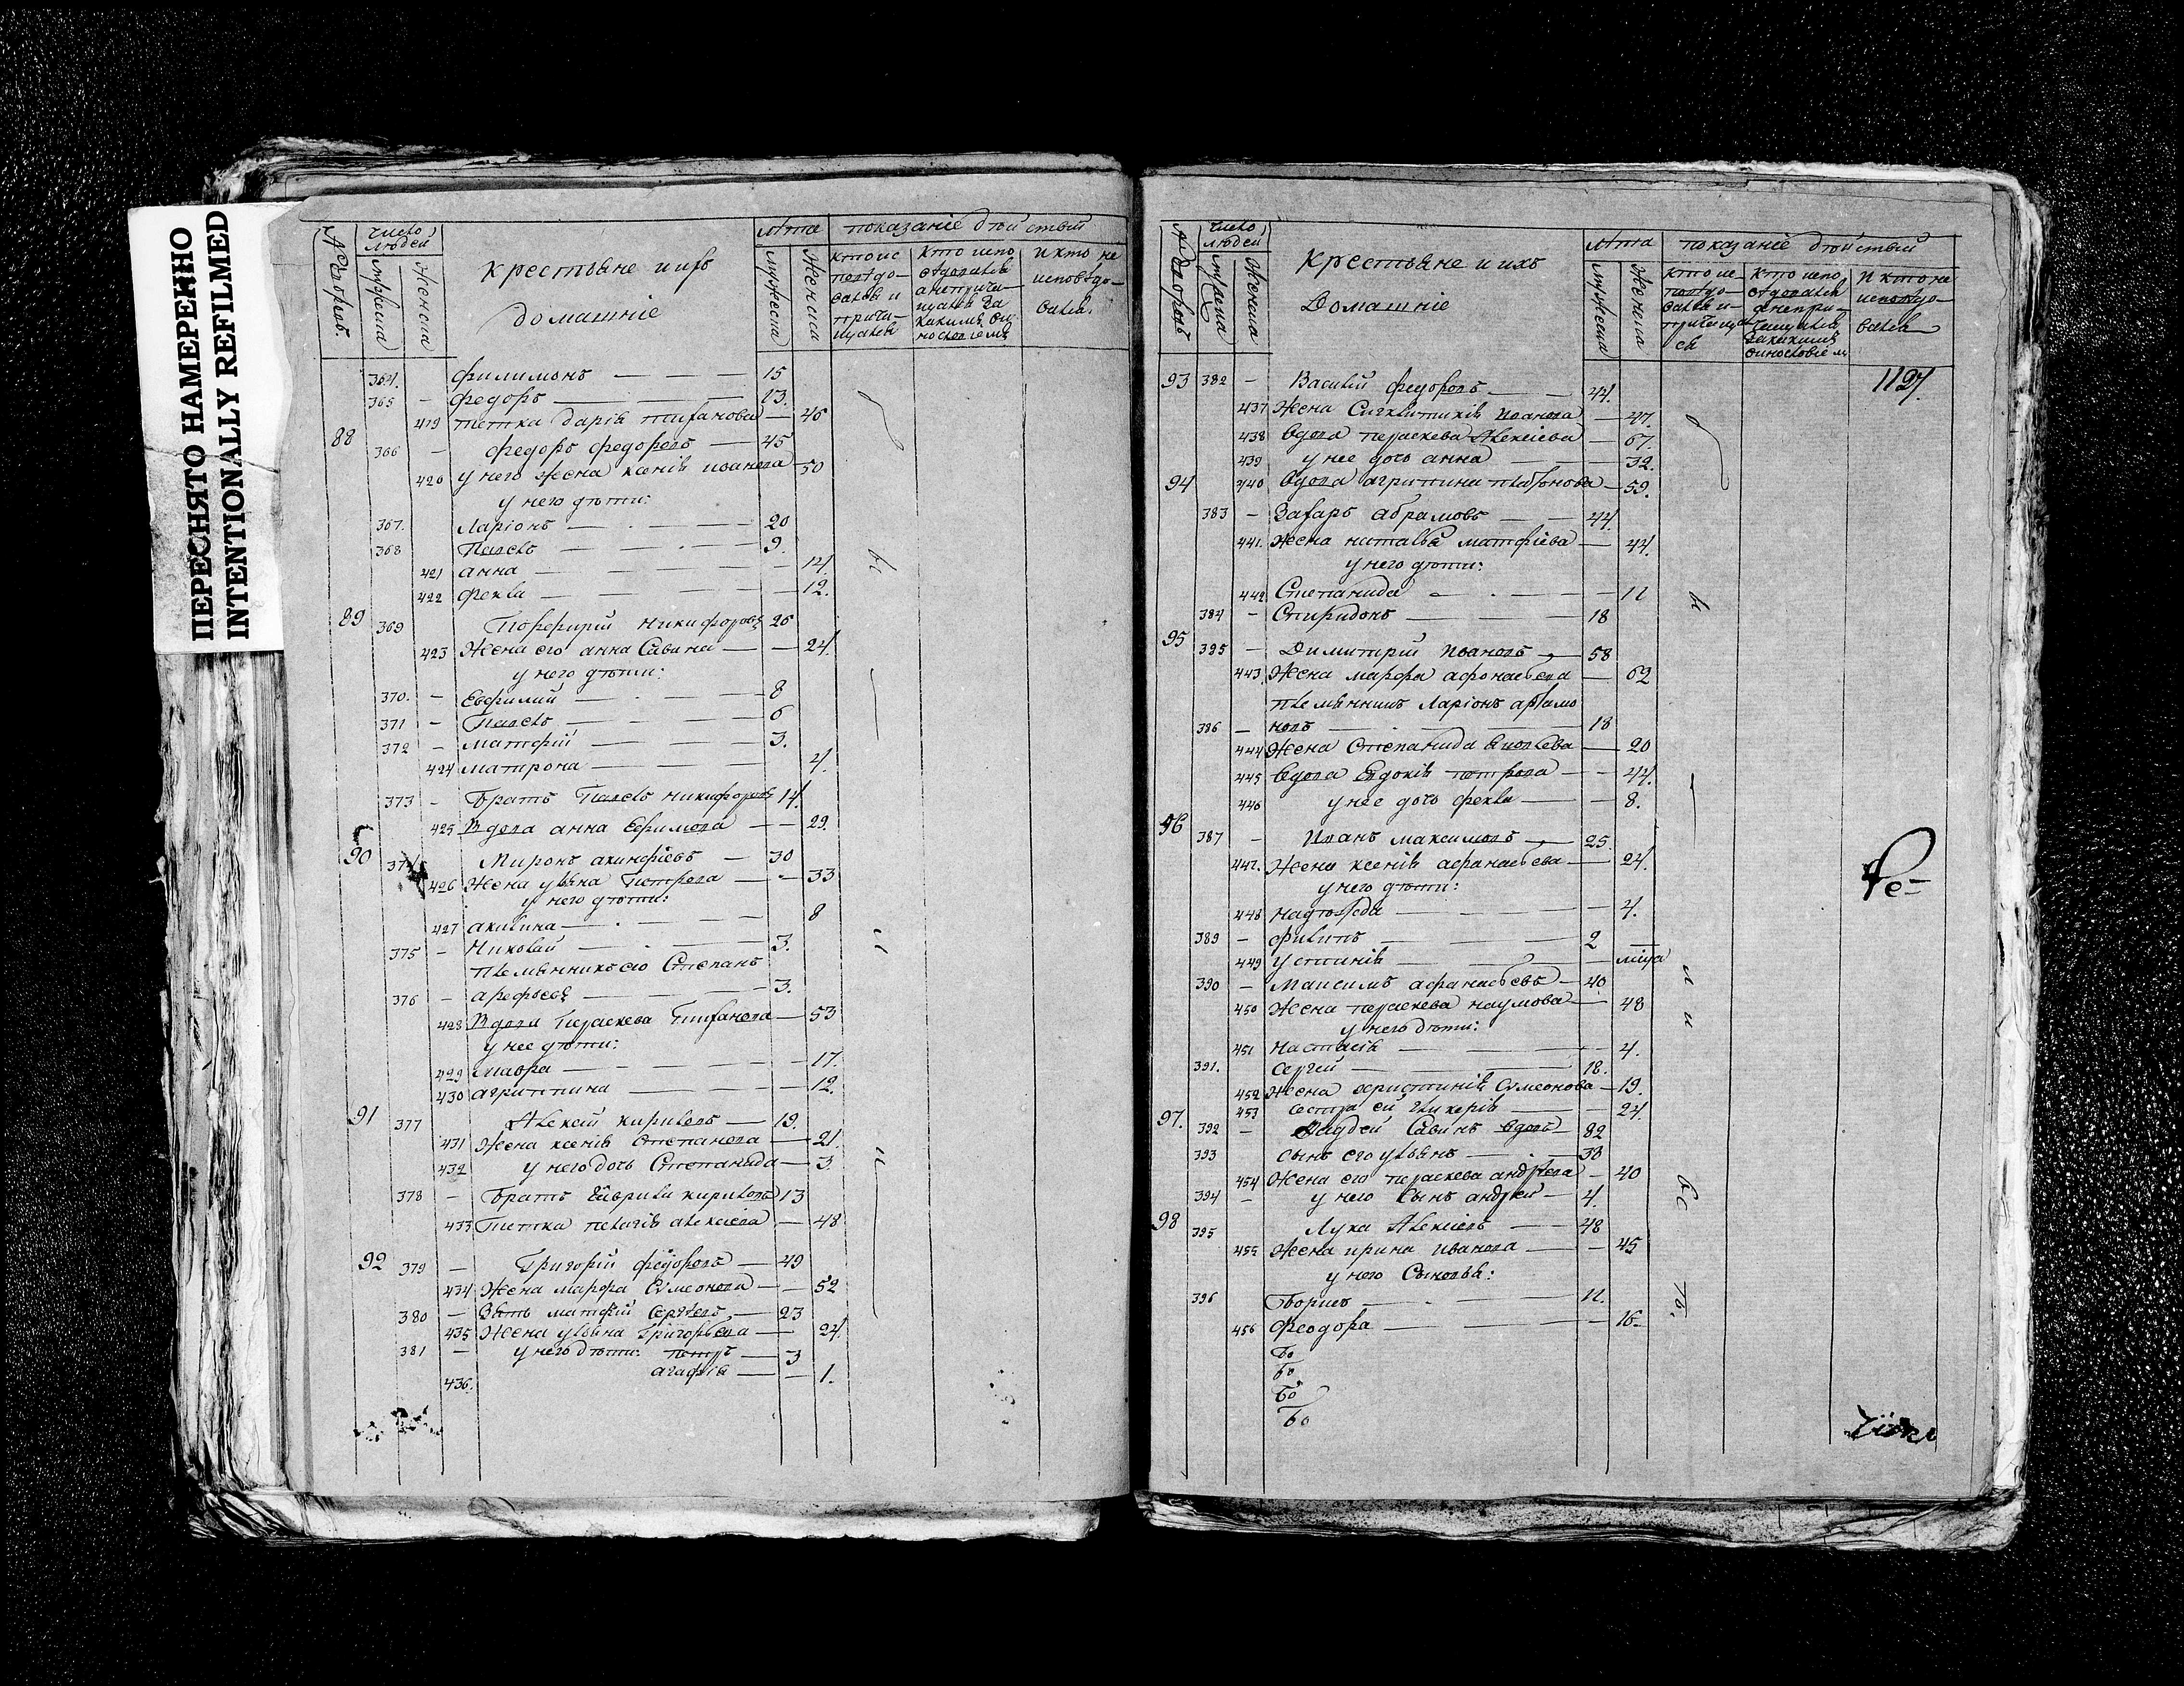 ПЕРЕСНЯТО НАМЕРЕННО
INTENTIONALLY REFILMED
число людей
лѣта показаніе дѣйствій
мужеска женска
крестьяне и ихъ
домашніе
мужеска женска
кто исповѣдо-
вался и
причащался
и кто не
исповѣдо-
вался
364. филимонъ 15
365 федоръ 13.
419 тетка дарія 46
88 366 федоръ федоровъ 45
420 у него жена ксенія иванова 50
у него дѣти:
367. Ларіонъ 20
368 Павелъ 9.
421 анна 14.
422 фекла 12.
89 369 Порфирій никифоровъ 26
423 жена его анна Савина 24.
у него дѣти:
370. Евфимий 8
371 Павелъ 6
372 матфій 3.
424 матрона 4.
373 братъ Павелъ никифоровъ 14.
425 вдова анна Ефимова 29.
90 374 Миронъ акинфіевъ 30
426 жена улььна Петрова 33
у него дѣти:
427 акилина 8
375 Николай 3.
племянникъ его Степанъ
376 арефьевъ 3.
428 вдова Параскева 53
у нее дѣти:
429 мавра 17.
430 агриппина 12.
91 377 Алексей кириловъ 19.
431 жена ксенія Степанова 21.
432 у него дочь Степанида 3.
378 братъ Гаврила кириловъ 13
433 тетка пелагія алексіева 48
92 379 Григорій федоровъ 49
434 жена марфа Сѵмеонова 52
380 Зять матфій Сергѣевъ 23
435 жена ульяна Григорьева 24.
381 у него дѣти: петръ 3
436. агафія 1.
число людей
лѣта показаніе дѣйствій
мужеска женска
крестьяне и ихъ
Домашніе
мужеска женска
и кто не
исповѣдо-
вался
1127.
93 382 Василій федоровъ 44.
437 жена иванова 47.
438 вдова параскева Алексіева 67.
439 у нее дочь анна 32.
94 440 вдова агрипина платонова 59.
383 Захаръ абрамовъ 44.
441. жена наталья матфіева 44.
у него дѣти:
442 Степанида 11
384 Спиридонъ 18
95 385 Димитрій ивановъ 58
443. жена марфа афонасьева 62
племянникъ Ларіонъ артамо
386 новъ 18
444 жена Степанида 20
445 вдова Евдокія петрова 44.
446 у нее дочь фекла 8.
96 387 Иванъ максимовъ 25.
447. жена ксенія афанасьева 24.
у него дѣти:
448 надѣжда 4.
389 филипъ 2
449 устинія
390 Максимъ афанасьевъ 40
450 жена параскева наумова 48
у него дѣти:
451 настасія 4.
391. Сергей 18.
452 жена христинія Сѵмеонова 19.
453 сестра ей гликерія 24.
97. 392 Фадей Савинъ вдовъ 82
393 сынъ его ульянъ 33
454 жена его параскева андрѣева 40
394 у него Сынъ андрѣй 4.
98 395 Лука Алексіевъ 48
455 жена ирина иванова 45
у него Сыновья:
396 Борисъ 11.
456 феодора 16
Бо
Бо
Бо
Бо